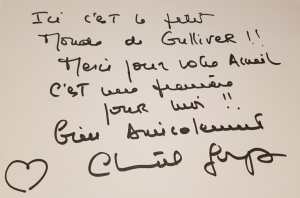 Ici c'est le petit
Monde de Gulliver !!
Merci pour votre Accueil
C'EST une première
pour moi !!
Bien Amicalement